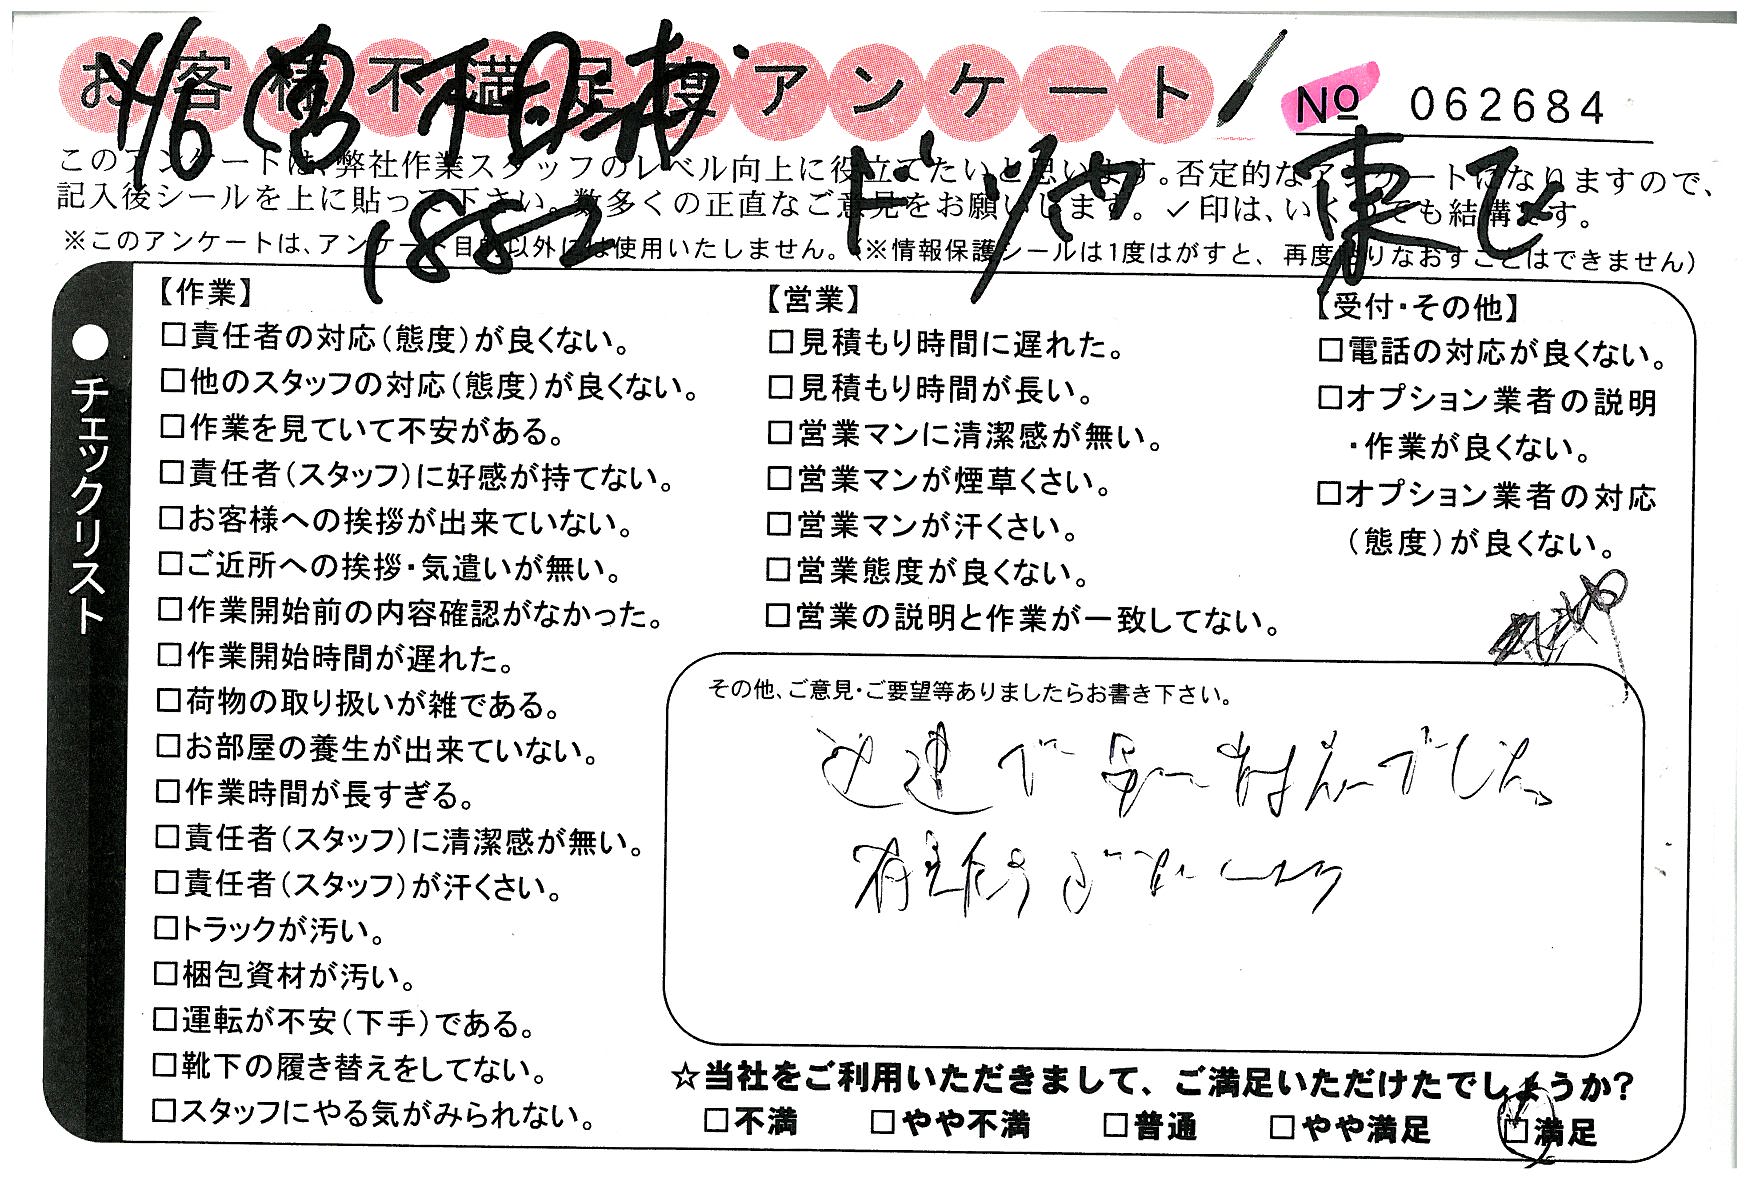 お客様不満足度アンケート
No 062684
1882
このアンケートは、弊社作業スタッフのレベル向上に役立てたいと思います。否定的なアンケートになりますので、
記入後シールを上に貼って下さい。数多くの正直なご意見をお願いします。✓印は、いくつでも結構です。
※このアンケートは、アンケート目的以外には使用いたしません。(※情報保護シールは1度はがすと、再度貼りなおすことはできません)
●チェックリスト
【作業】
□責任者の対応(態度)が良くない。
□他のスタッフの対応(態度)が良くない。
□作業を見ていて不安がある。
□責任者(スタッフ)に好感が持てない。
□お客様への挨拶が出来ていない。
□ご近所への挨拶・気遣いが無い。
□作業開始前の内容確認がなかった。
□作業開始時間が遅れた。
□荷物の取り扱いが雑である。
□お部屋の養生が出来ていない。
□作業時間が長すぎる。
□責任者(スタッフ)に清潔感が無い。
□責任者(スタッフ)が汗くさい。
□トラックが汚い。
□梱包資材が汚い。
□運転が不安(下手)である。
□靴下の履き替えをしてない。
□スタッフにやる気がみられない。
【営業】
□見積もり時間に遅れた。
□見積もり時間が長い。
□営業マンに清潔感が無い。
□営業マンが煙草くさい。
□営業マンが汗くさい。
□営業態度が良くない。
□営業の説明と作業が一致してない。
【受付・その他】
□電話の対応が良くない。
□オプション業者の説明
・作業が良くない。
□オプション業者の対応
(態度)が良くない。
その他、ご意見・ご要望等ありましたらお書き下さい。
でした。
☆当社をご利用いただきまして、ご満足いただけたでしょうか?
□不満 □やや不満 □普通 □やや満足 □満足